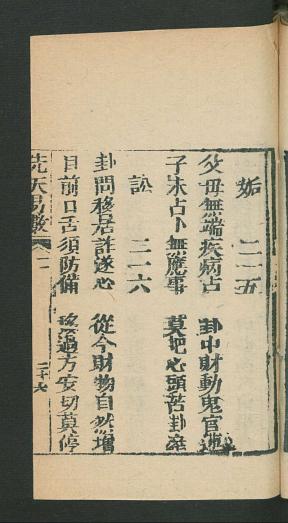 姤 二一五
父母無端疾病占 卦中財動鬼官
子未占卜無應事 莫把心頭苦卦
訟 二一六
卦問移居許遂心 從今財物自然增
目前口舌須防備 過方安切莫停
先天易數 二十七